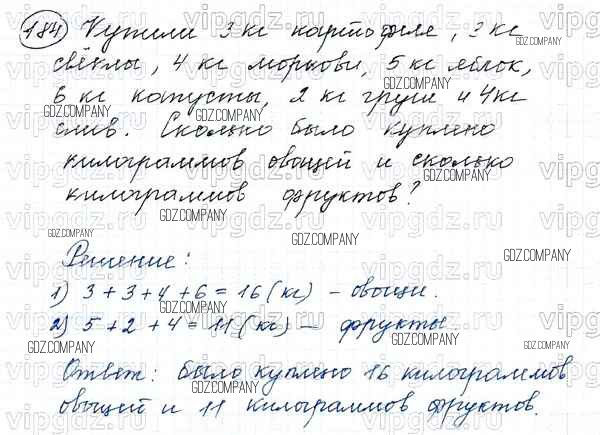 184 Купили 3 кг картофеля, 3 кг
свёклы, 4 кг моркови, 5 кг яблок,
6 кг капусты, 2 кг груш и 4 кг
слив. Сколько было куплено
килограммов овощей и сколько
килограммов фруктов?
Решение:
1) 3 + 3 + 4 + 6 = 16 (кг) – овощи.
2) 5 + 2 + 4 = 11 (кг) – фрукты.
Ответ: было куплено 16 килограммов
овощей и 11 килограммов фруктов.
vipgdz.ru
GDZ.COMPANY